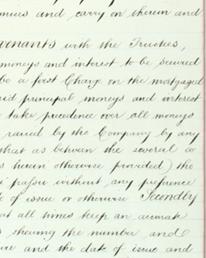 mises and carry on therein and
venants with the Trustees,
moneys and interest to be secured
be a first Charge on the mortgaged
id principal moneys and interest
take precedence over all moneys
raised by the Company by any
that as between the several
herein otherwise provided) the
passu without any preference
of issue or otherwise Secondly
at all times keep an accurate
shewing the number and
and the date of issue and